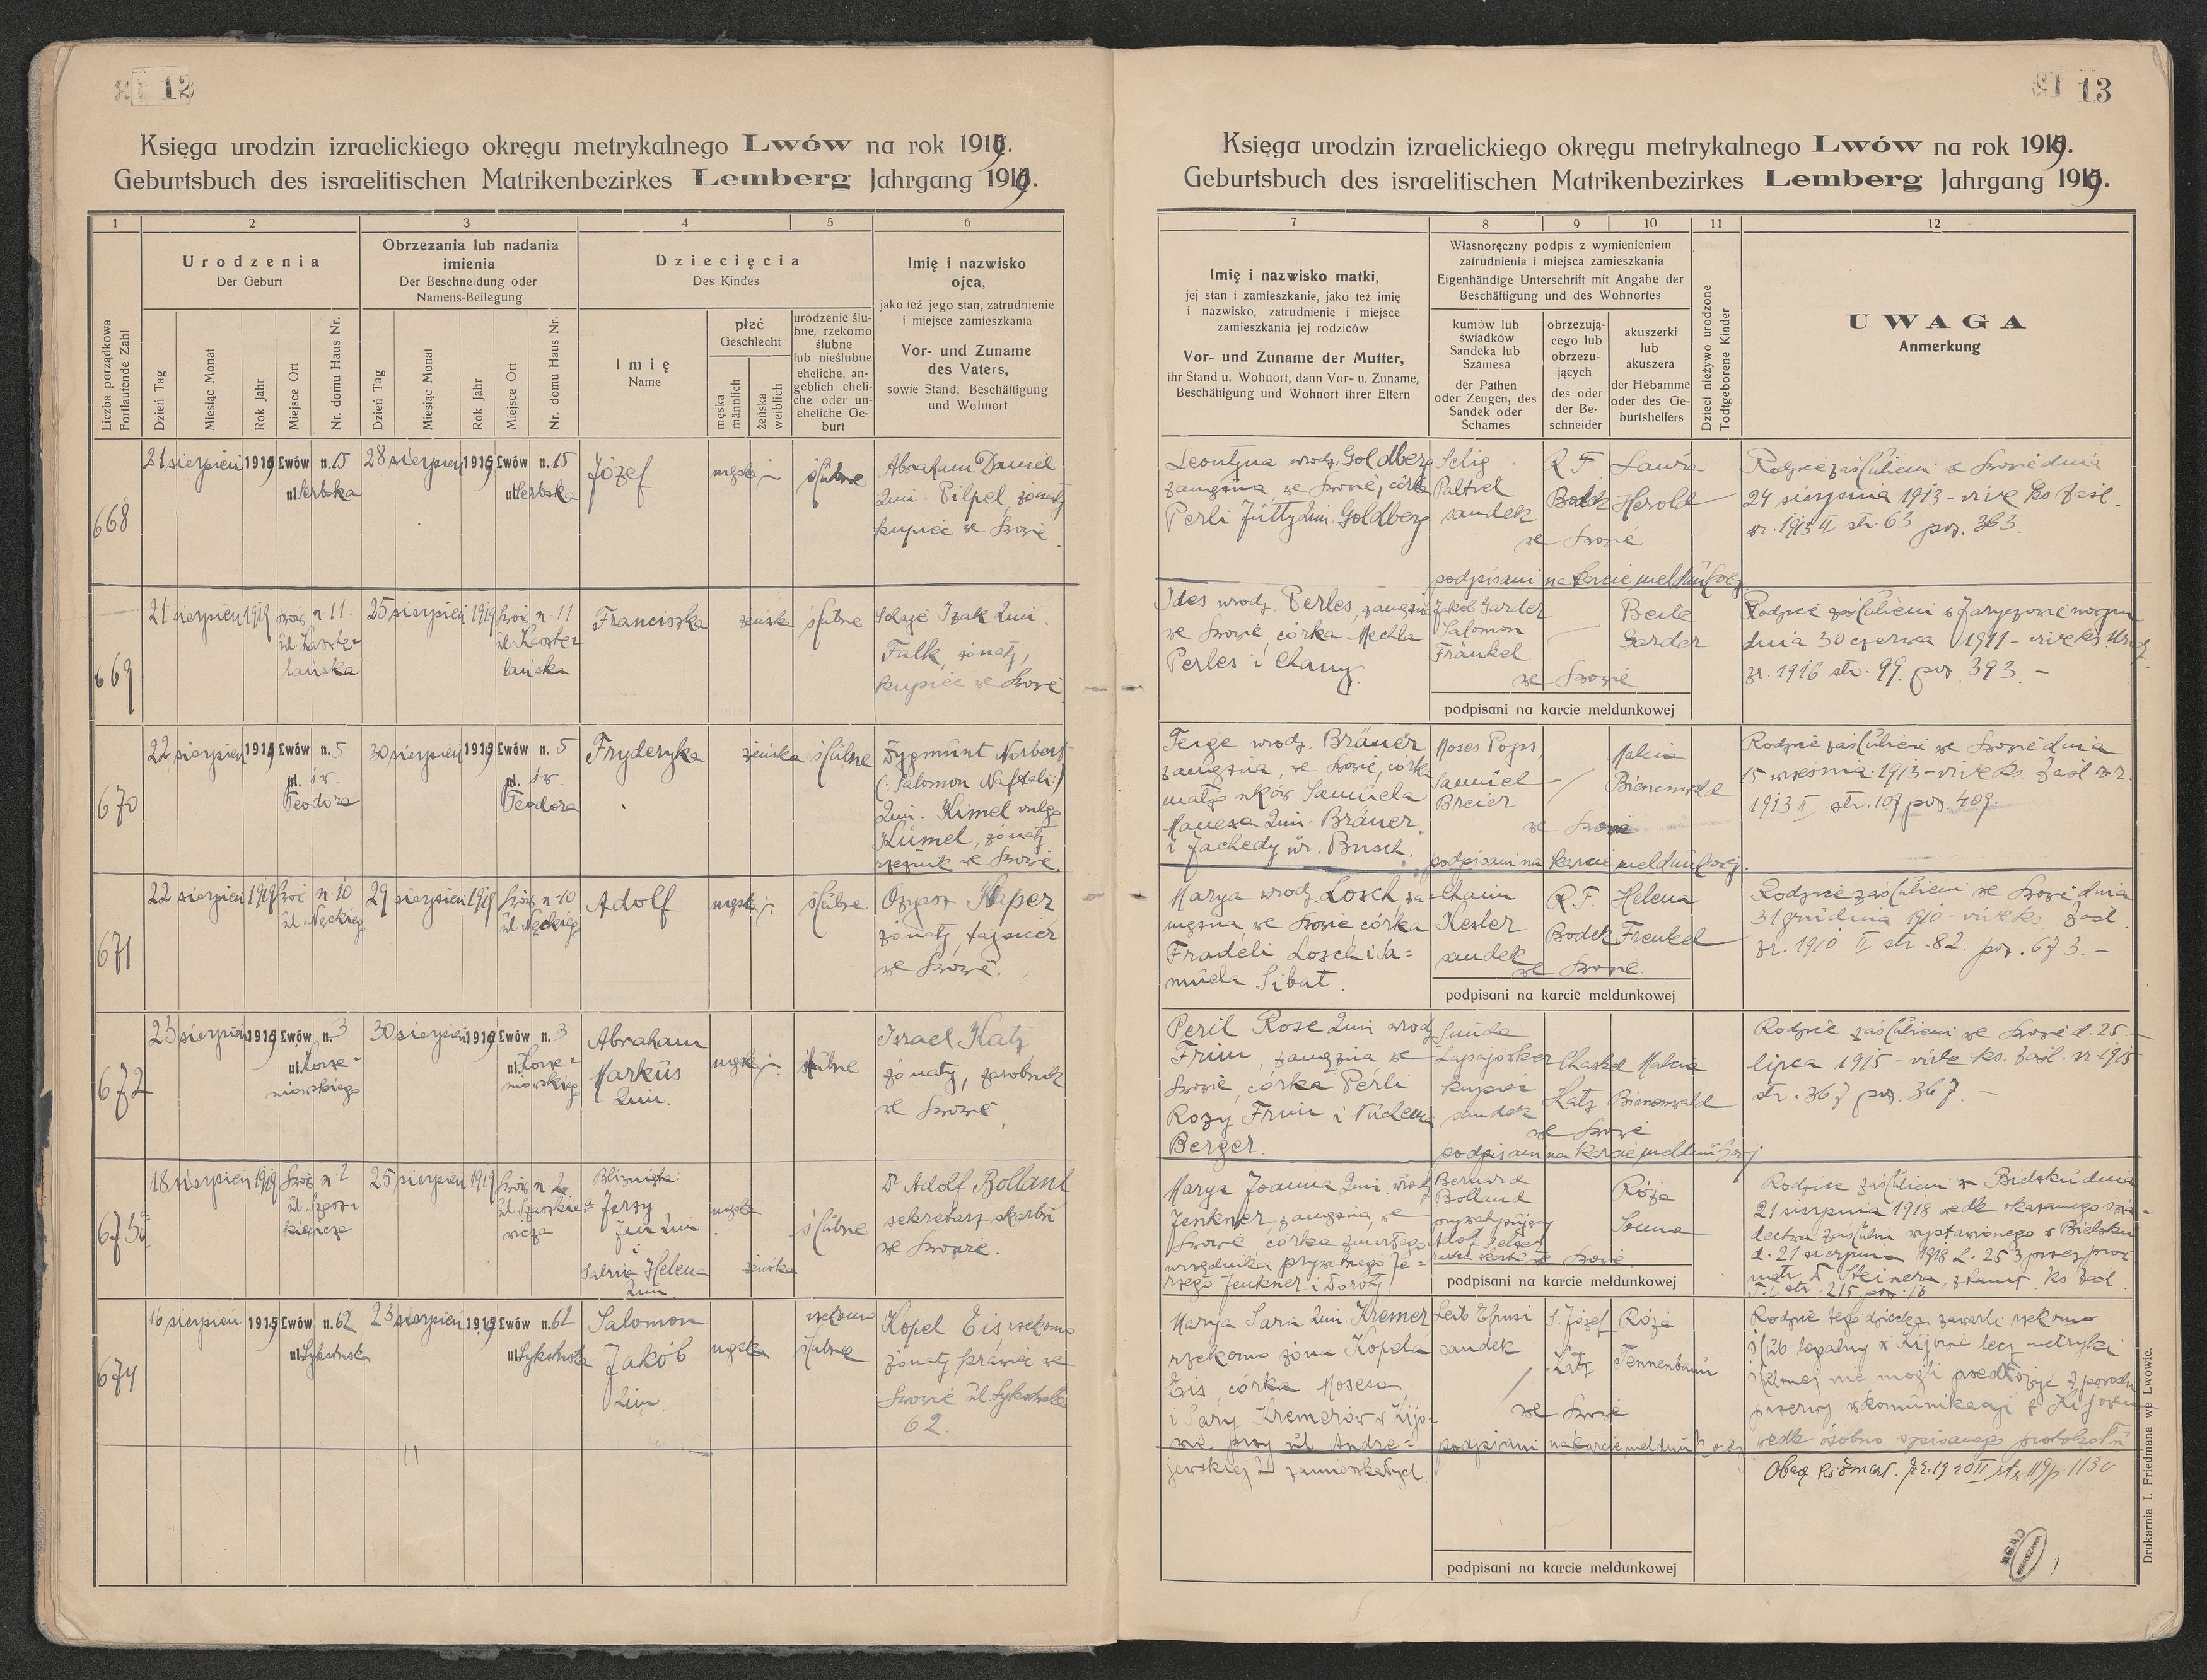 12
Księga urodzin izraelickiego okręgu metrykalnego Lwów na rok 1919.
Geburtsbuch des israelitischen Matrikenbezirkes Lemberg Jahrgang 1919.
1 2 3 4 5 6
Liczba porządkowa
Fortlaufende Zahl
Urodzenia
Der Geburt
Dzień Tag
Miesiąc Monat
Rok Jahr
Miejsce Ort
Nr. domu Haus Nr.
Obrzezania lub nadania
imienia
Der Beschneidung oder
Namens-Beilegung
Dzień Tag
Miesiąc Monat
Rok Jahr
Miejsce Ort
Nr. domu Haus Nr.
Dziecięcia
Des Kindes
Imię
Name
płeć
Geschlecht
męska
männlich
żeńska
weiblich
urodzenie ślu-
bne, rzekomo
ślubne
lub nieślubne
eheliche, an-
geblich eheli-
che oder un-
eheliche Ge-
burt
Imię i nazwisko
ojca,
jako też jego stan, zatrudnienie
i miejsce zamieszkania
Vor- und Zuname
des Vaters,
sowie Stand, Beschäftigung
und Wohnort
668
21 sierpień 1919 Lwów n. 15
ul. Serbska
28 sierpień 1919 Lwów n. 15
ul. Serbska
Józef
męska
ślubne
Abraham Daniel
2im. Pilpel, żonaty
kupiec we Lwowie
669
21 sierpień 1919 Lwów n 11.
ul. Kaszte-
lańska
25 sierpień 1919 Lwów n. 11
ul. Kaszte-
lańska
Franciszka
żeńska
ślubne
Izak 2im.
Falk, żonaty,
kupiec we Lwowie
670
22 sierpień 1919 Lwów n. 5
pl. św.
Teodora
30 sierpień 1919 Lwów n. 5
pl. św.
Teodora
Fryderyka
żeńska
ślubne
Zygmunt Norbert
(: Salomon Naftali :)
2im. Kimel vulgo
Kümel, żonaty
we Lwowie.
671
22 sierpień 1919 Lwów n. 10
29 sierpień 1919 Lwów n. 10
Adolf
męska
ślubne
Kaper
żonaty,
we Lwowie.
672
23 sierpień 1919 Lwów n. 3
ul. Korze-
niowskiego
30 sierpień 1919 Lwów n. 3
ul. Korze-
niowskiego
Abraham
Markus
2im.
męska
ślubne
Israel Katz
żonaty, zarobnik
we Lwowie,
673
18 sierpień 1919 Lwów n. 2
25 sierpień 1919 Lwów n. 2
Bliźnięta:
Jerzy
Jan 2im
i
Helena
2im.
męska
żeńska
ślubne
Dr Adolf Bolland
sekretarz skarbu
we Lwowie.
674
16 sierpień 1919 Lwów n. 62
ul. Sykstuska
23 sierpień 1919 Lwów n. 62
ul. Sykstuska
Salomon
Jakób
2im.
męska
rzekomo
ślubne
Kopel Eis rzekomo
żonaty krawiec we
Lwowie ul. Sykstuska
62.
13
Księga urodzin izraelickiego okręgu metrykalnego Lwów na rok 1919.
Geburtsbuch des israelitischen Matrikenbezirkes Lemberg Jahrgang 1919.
7 8 9 10 11 12
Imię i nazwisko matki,
jej stan i zamieszkanie, jako też imię
i nazwisko, zatrudnienie i miejsce
zamieszkania jej rodziców
Vor- und Zuname der Mutter,
ihr Stand u. Wohnort, dann Vor- u. Zuname,
Beschäftigung und Wohnort ihrer Eltern
Własnoręczny podpis z wymienieniem
zatrudnienia i miejsca zamieszkania
Eigenhändige Unterschrift mit Angabe der
Beschäftigung und des Wohnortes
kumów lub
świadków
Sandeka lub
Szamesa
der Pathen
oder Zeugen, des
Sandek oder
Schames
obrzezują-
cego lub
obrzezu-
jących
des oder
der Be-
schneider
akuszerki
lub
akuszera
der Hebamme
oder des Ge-
burtshelfers
Dzieci nieżywo urodzone
Todtgeborene Kinder
UWAGA
Anmerkung
Leontyna urodz. Goldberg
zamężna we Lwowie, córka
Perli Jütty 2im. Goldberg
Selig
sandek
R F
Bodek
Laura
Herold
we Lwowie
podpisani na karcie meldunkowej
Rodzice zaślubieni w Lwowie dnia
24 sierpnia 1913 - vide ks zaśl.
zr. 1913 II str 63 poz. 363.
Ides urodz. Perles, zamężna
we Lwowie córka Mechla
Perles i Chany.
Jakob Garder
Salomon
Fränkel
Beile
Garder
we Lwowie
podpisani na karcie meldunkowej
dnia 30 czerwca 1911 - vide ks.
zr. 1916 str. 99. poz 393. -
Feige urodz. Bräuer
zamężna, we Lwowie, córka
małżonków Samuela
Manesa 2im. Bräuer
i Zachedy ur. Busch.
Moses Pops,
Samuel
Breier
Malcia
Bienenwald
we Lwowie
podpisani na karcie meldunkowej.
Rodzice zaślubieni we Lwowie dnia
15 września 1913 - vide ks. zaśl zr.
1913 II str. 109 poz. 409.
Marya urodz. Losch za-
mężna we Lwowie córka
Fradeli Losch i Sa-
muela Sibat.
Chaim
Kesler
sandek
R. F.
Bodek
Helena
Frenkel
we Lwowie.
podpisani na karcie meldunkowej
Rodzice zaślubieni we Lwowie dnia
31 grudnia 1910 - vide ks. zaśl
zr. 1910 II str. 82. poz. 673. -
Peril Rose 2im urodz
Frim, zamężna we
Lwowie, córka Perli
Rozy Frim i Nuchema
Berger.
kupiec
sandek
Chaskel
Katz
Malcia
Bienenwald
we Lwowie
podpisani na karcie meldunkowej
Rodzice zaślubieni we Lwowie d. 25.
lipca 1915 - vide ks. zaśl. zr 1915
str. 367 poz. 367. -
Marya Joanna 2im. urodz
Jenkner, zamężna, we
Lwowie, córka zmarłego
urzędnika prywatnego Je-
rzego Jenkner i Doroty
Bernard
Bolland
Róża
we Lwowie
podpisani na karcie meldunkowej
Rodzice zaślubieni w Bielsku dnia
21 sierpnia 1918 wedle okazanego świa-
dectwa zaślubin wystawionego w Bielsku
d. 21 sierpnia 1918 L. 253 przez prow
metr. Steinera,
Marya Sara 2im. Kremer
rzekomo żona Kopla
Eis, córka Mosesa
i Sary Kremerów w Kijo-
wie przy ul Andre-
jewskiej 2 zamieszkałych.
sandek
Józef
Katz
Róża
Tennenbaum
we Lwowie
podpisani na karcie meldunkowej
Rodzice tego dziecka zawarli rzekomo
ślub legalny w Kijowie lecz metryki
ślubnej nie mogli przedłożyć z powodu
przerwy w komunikacji z Kijowem
wedle osobno spisanego protokołu
podpisani na karcie meldunkowej
Drukarnia I. Friedmana we Lwowie.